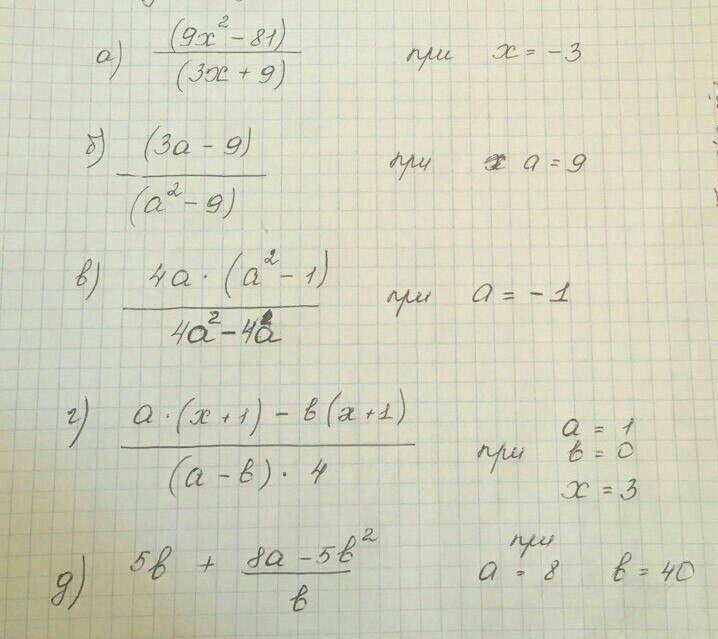 а) (9x² - 81) / (3x + 9) при x = -3
б) - (3a - 9) / (a² - 9) при a = 9
в) 4a · (a² - 1) / 4a² - 4a при a = -1
г) a · (x + 1) - в (x + 1) / (a - в) · 4 при a = 1
в = 0
x = 3
д) 5в + 8a - 5в² / в при a = 8 в = 40